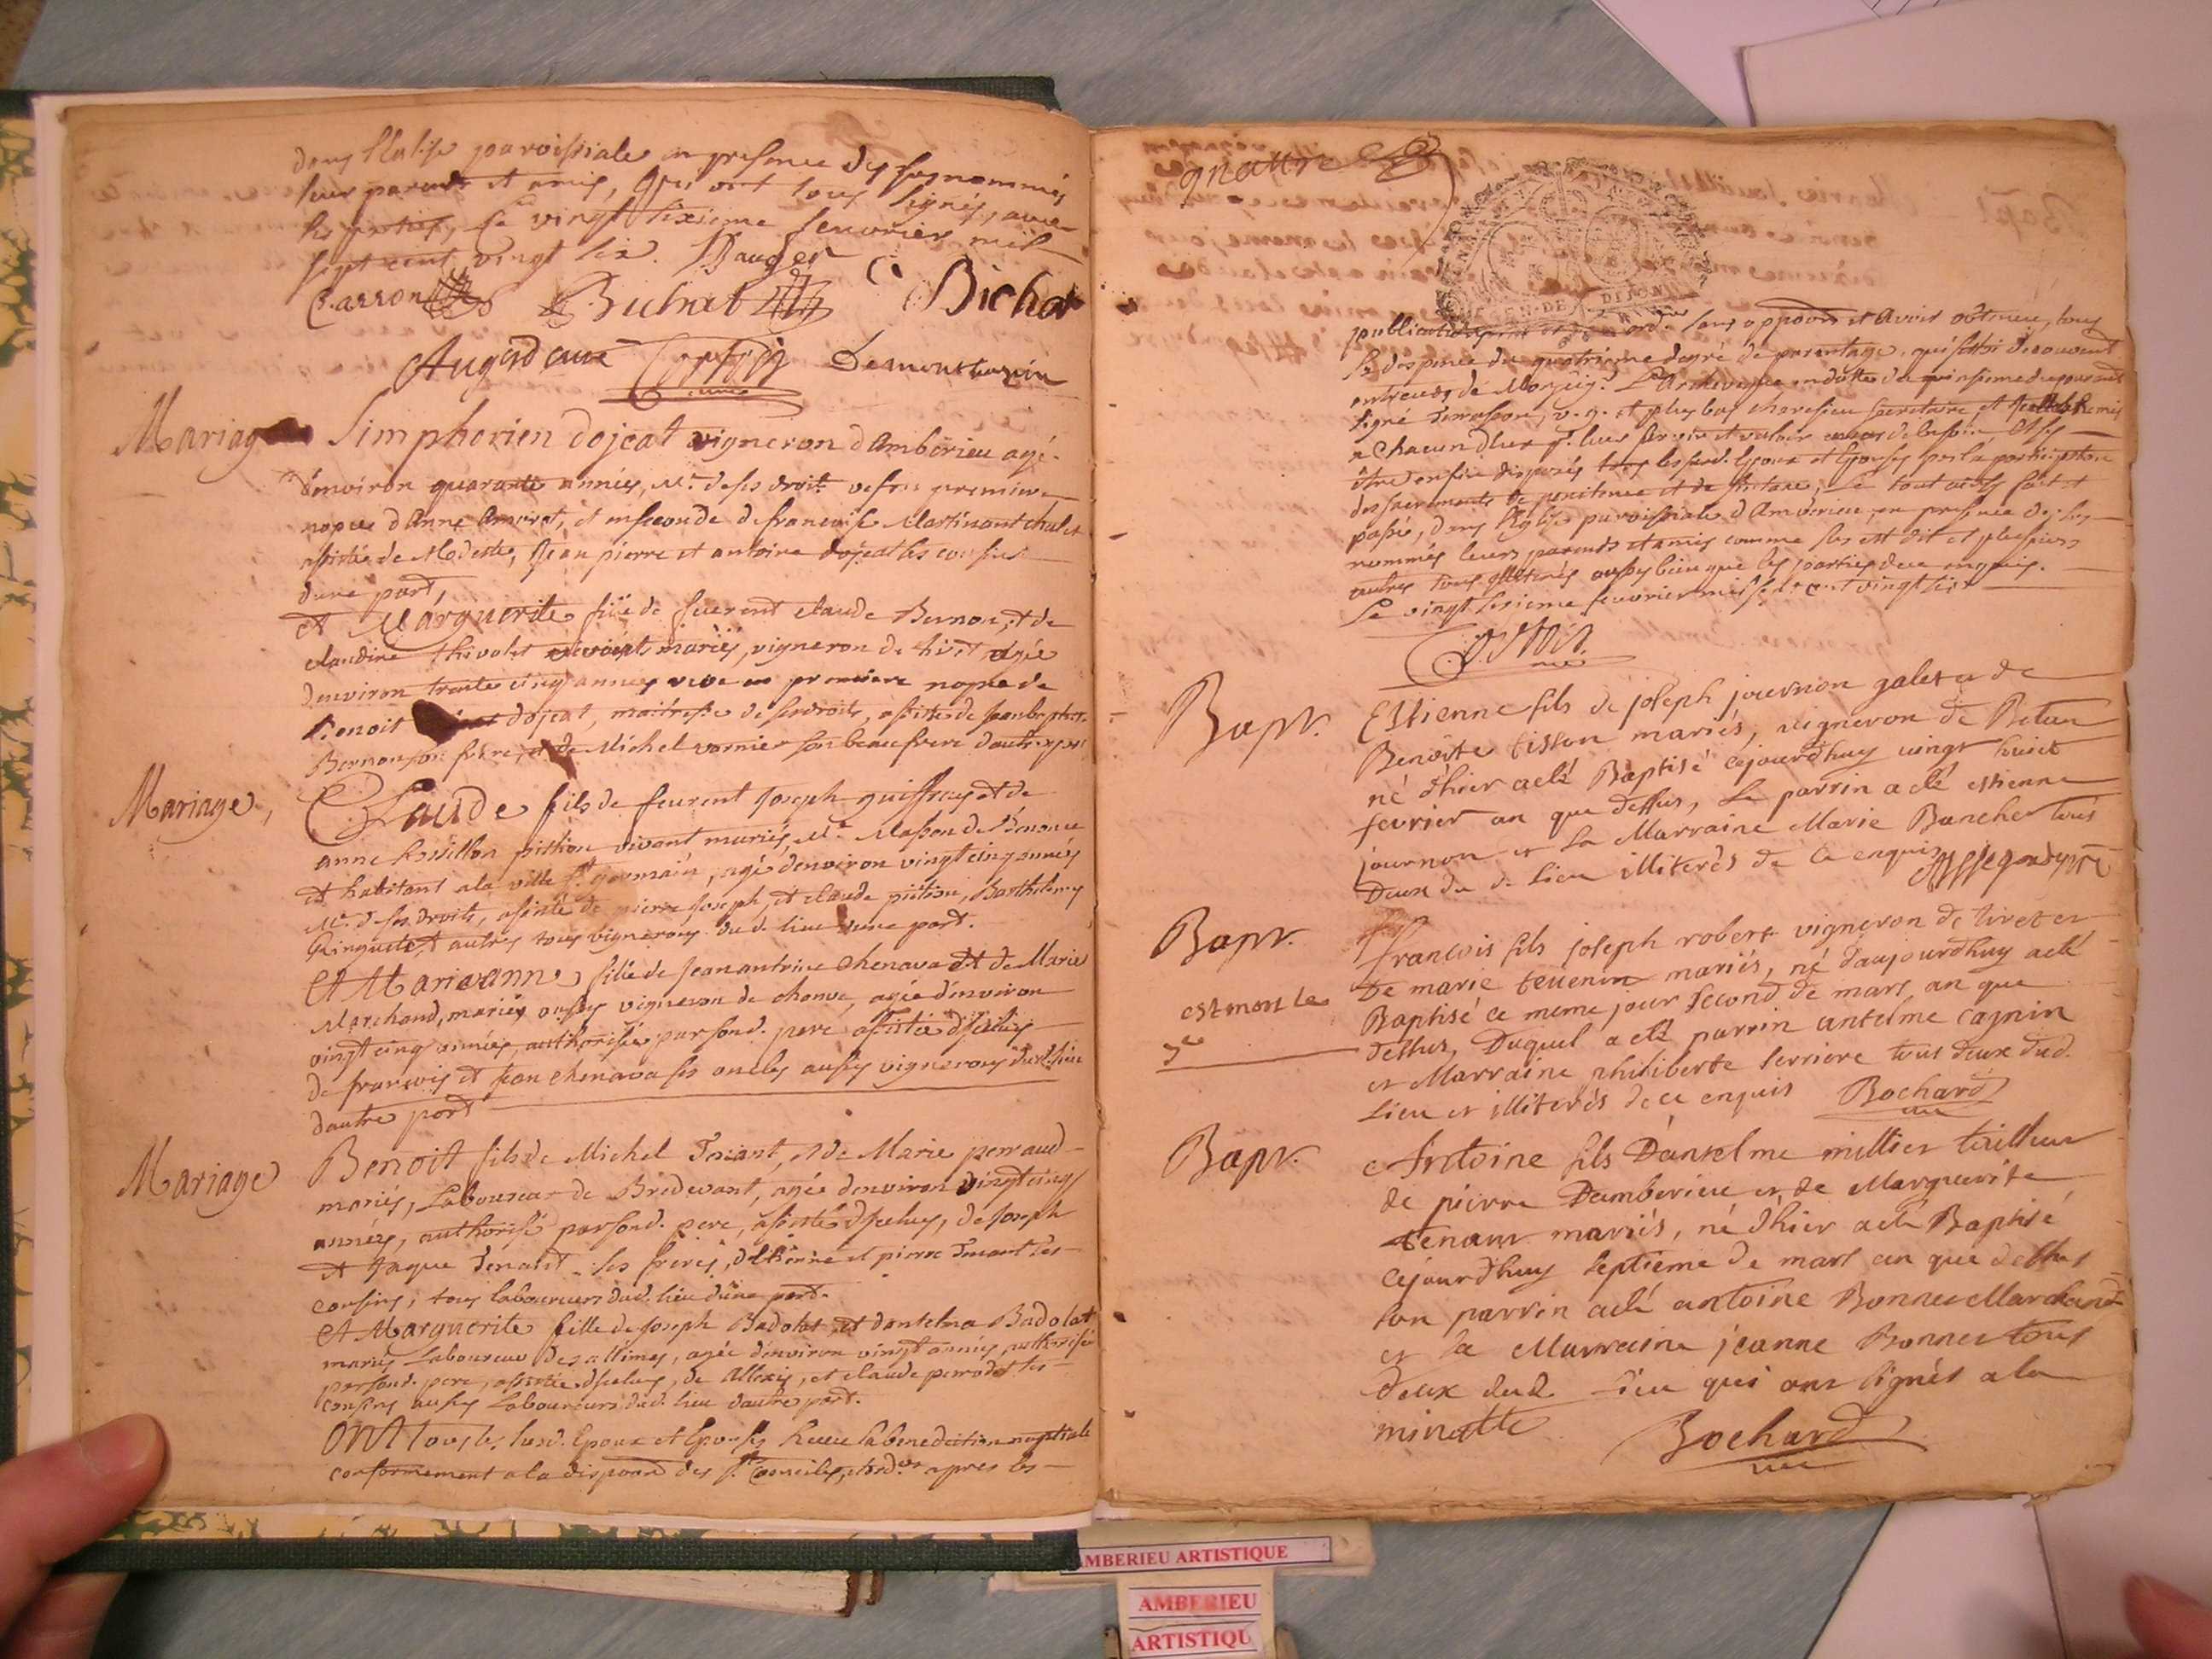 dans l'Eglise paroissiale en presence des susnommés
leur parents et amis, qui ont tous signés, avec
les parties, Ce vingt sixieme feuvrier mil
sept cent vingt six. Bauger
Charron Buhat C Bichat
Augerd curé Demontuzin
Mariage Simphorien dojeat vigneron d'Amberieu agé
d'environ quarante années, Me. de ses droits vefs en premiere
nopces d'Anne Amaret, et en seconde de francoise Martinant chalet
assistée de Modeste, Jean pierre et antoine dojeat ses cousins
dune part,
et Marguerite fille de feurent claude Bernon, et de
claudine thevolet vivants mariés, vigneron de tiret, agée
d'environ trente cinq années veve en premiere nopce de
Benoit dojeat, maitresse de ses droits, assistée de Jean baptiste
Bernon son frere, et de Michel vornier son beau frere d'autre part
Mariage, Claude fils de feurent Joseph guiffray et de
anne Rossillon pittion vivant mariés, Me. Masson de
et habitant a la ville St. germain, agé denviron vingt cinq années
Me. de ses droits, assisté de pierre Joseph, et claude pittion, Barthelemy
Ginguet, et autres tous vignerons dud. lieu dune part.
Et Marieanne, fille de Jean antoine Chenava et de Marie
Marchand, mariés aussy vigneron de chauve, agée d'environ
vingt cinq années, authorisée par sond. pere assistée d'iceluy
de francois et Jean chenava ses oncles aussy vignerons dud. lieu
dautre part
Mariage Benoit fils de Michel Tenant, et de Marie perraud
mariés, Laboureur de Bredevant, agée denviron vingt cinq
années, authorisé par sond. pere, assisté d'iceluy, de Joseph
et Jaque Tenant ses freres, d'Etienne et pierre Tenant ses
cousins, tous laboureurs dud. lieu d'une part.
Et Marguerite fille de Joseph Badolat et dantelma Badolat
mariés Laboureur des allimes, agée denviron vingt années, authorisée
par sond. pere, assistée d'iceluy, de Allexis, et claude perrodet ses
cousins aussy Laboureurs dud. lieu dautre part.
Ont tous les susd. Epoux et Epouses Receu la benediction nuptiale
conformement a la dispoon. des Sts. Conciles, et ord.es apres les
quattre
GEN. DE DIJON
publications sans oppoon. et avoir obtenu, tous
la dispence du quatrieme degré de parentage, qui s'etoi decouvert
entreux de Monseigr. L'archeveque en datte du quinsieme du courant
signé Terrasson, v. g. et plus bas charesieu secretaire, et
a Chacun d'eux pr. leur servir et valoir en cas de besoin, et si
être enfin disposés tous lesd. Epoux et Epouses par la participation
des sacrements de penitence et de ; Le tout ainsy fait et
passé, dans l'Eglise paroissiale d'Amberieu, en presence des sus
nommés leurs parents et amis comme sus est dit et plusieurs
autres tous illiterés aussy bien que les parties de ce enquis.
Le vingt sixieme feuvrier mil sept cent vingt six
curé
Bapt. Estienne fils de joseph journon galet et de
Benoite tisson mariés, vigneron de Betan
né d'hier a eté Baptisé cejourd'huy vingt huict
fevrier an que dessus, Le parrin a eté estienne
journon et La Marraine Marie Boncher tous
Deux du d. Lieu illiterés de ce enquis
Bapt. francois fils joseph robert vigneron de tiret et
de marie tevenin mariés, né d'aujourd'huy a eté
est mort le Baptisé ce meme jour second de mars an que
3e dessus, Duquel a eté parrin antelme cagnin
et Marraine philiberte serriere tous deux dud.
Lieu et illiterés de ce enquis Bochard
Bapt. Antoine fils D'antelme millier tailleur
de pierre Damberieu et de Marguerite
tenant mariés, né d'hier a eté Baptisé
cejourd'huy septieme de mars an que dessus
son parrin a eté antoine Bonnet Marchand
et la Marraine jeanne Bonnet tous
deux dud. Lieu qui ont signés a la
minutte Bochard
AMBERIEU ARTISTIQUE
AMBERIEU
ARTISTIQU